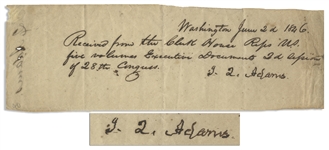 Washington June 2d 1846.
Received from the Clerk House Reps US.
five volumes Executive Documents 2d Session
of 28th Congress.
J. Q. Adams
J. Q. Adams.